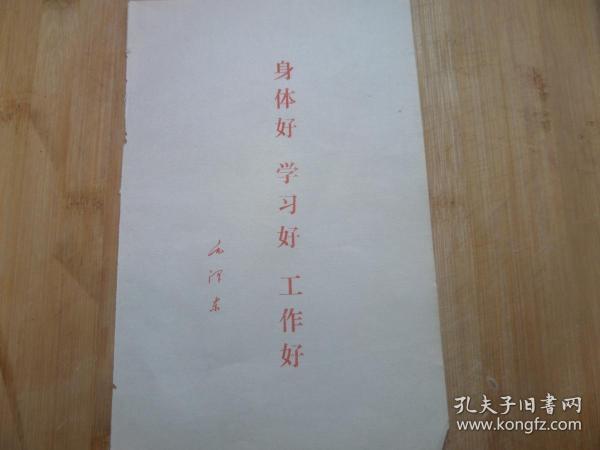 身体好 学习好 工作好
毛泽东
孔夫子旧书网
www.kongfz.com